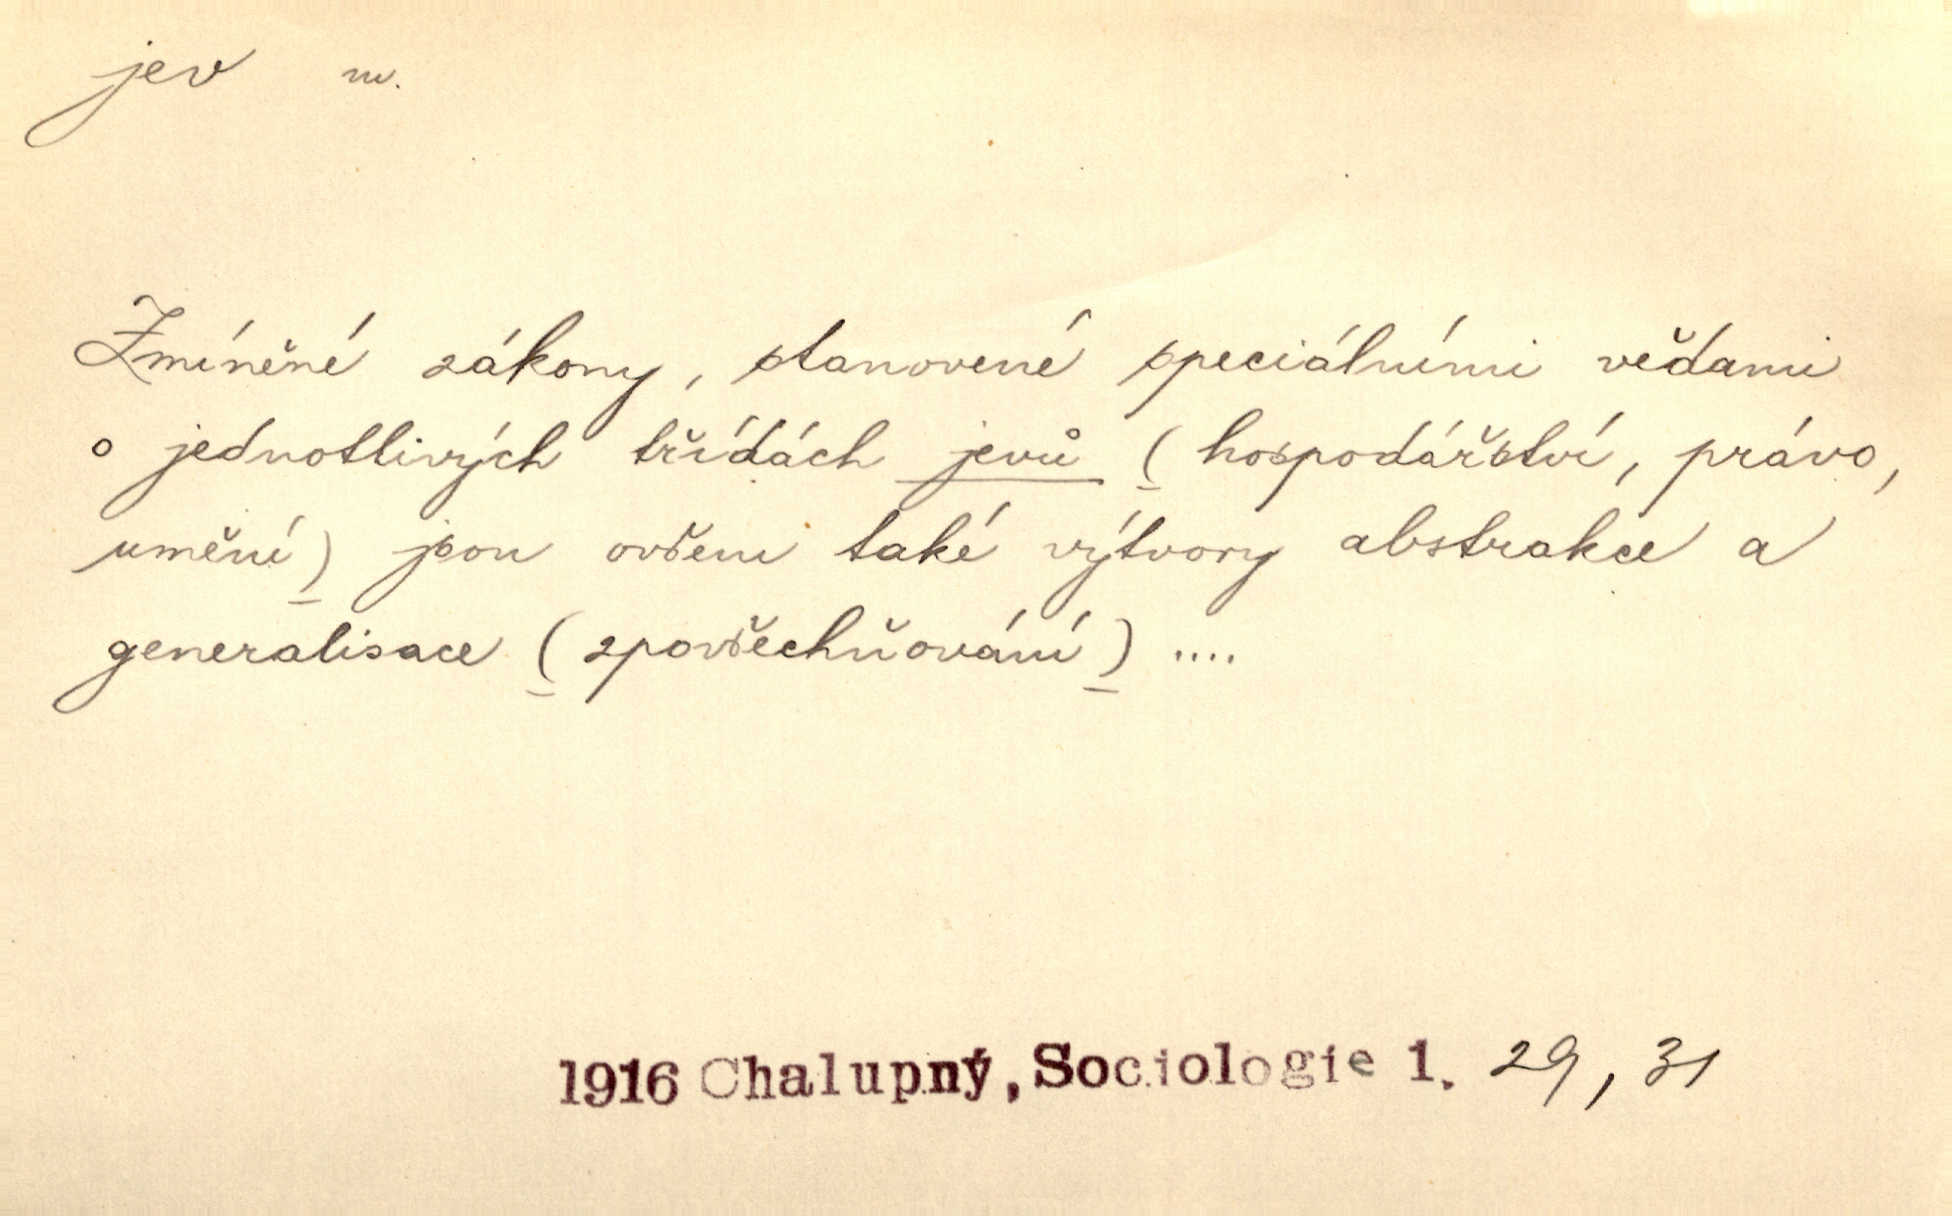 jev m.
Zmíněné zákony, stanovené speciálními vědami
o jednotlivých třídách jevů (hospodářství, právo,
umění) jsou ovšem také výtvory abstrakce a
generalisace (zpovšechňování) ....
1916 Chalupný, Sociologie 1. 29, 31